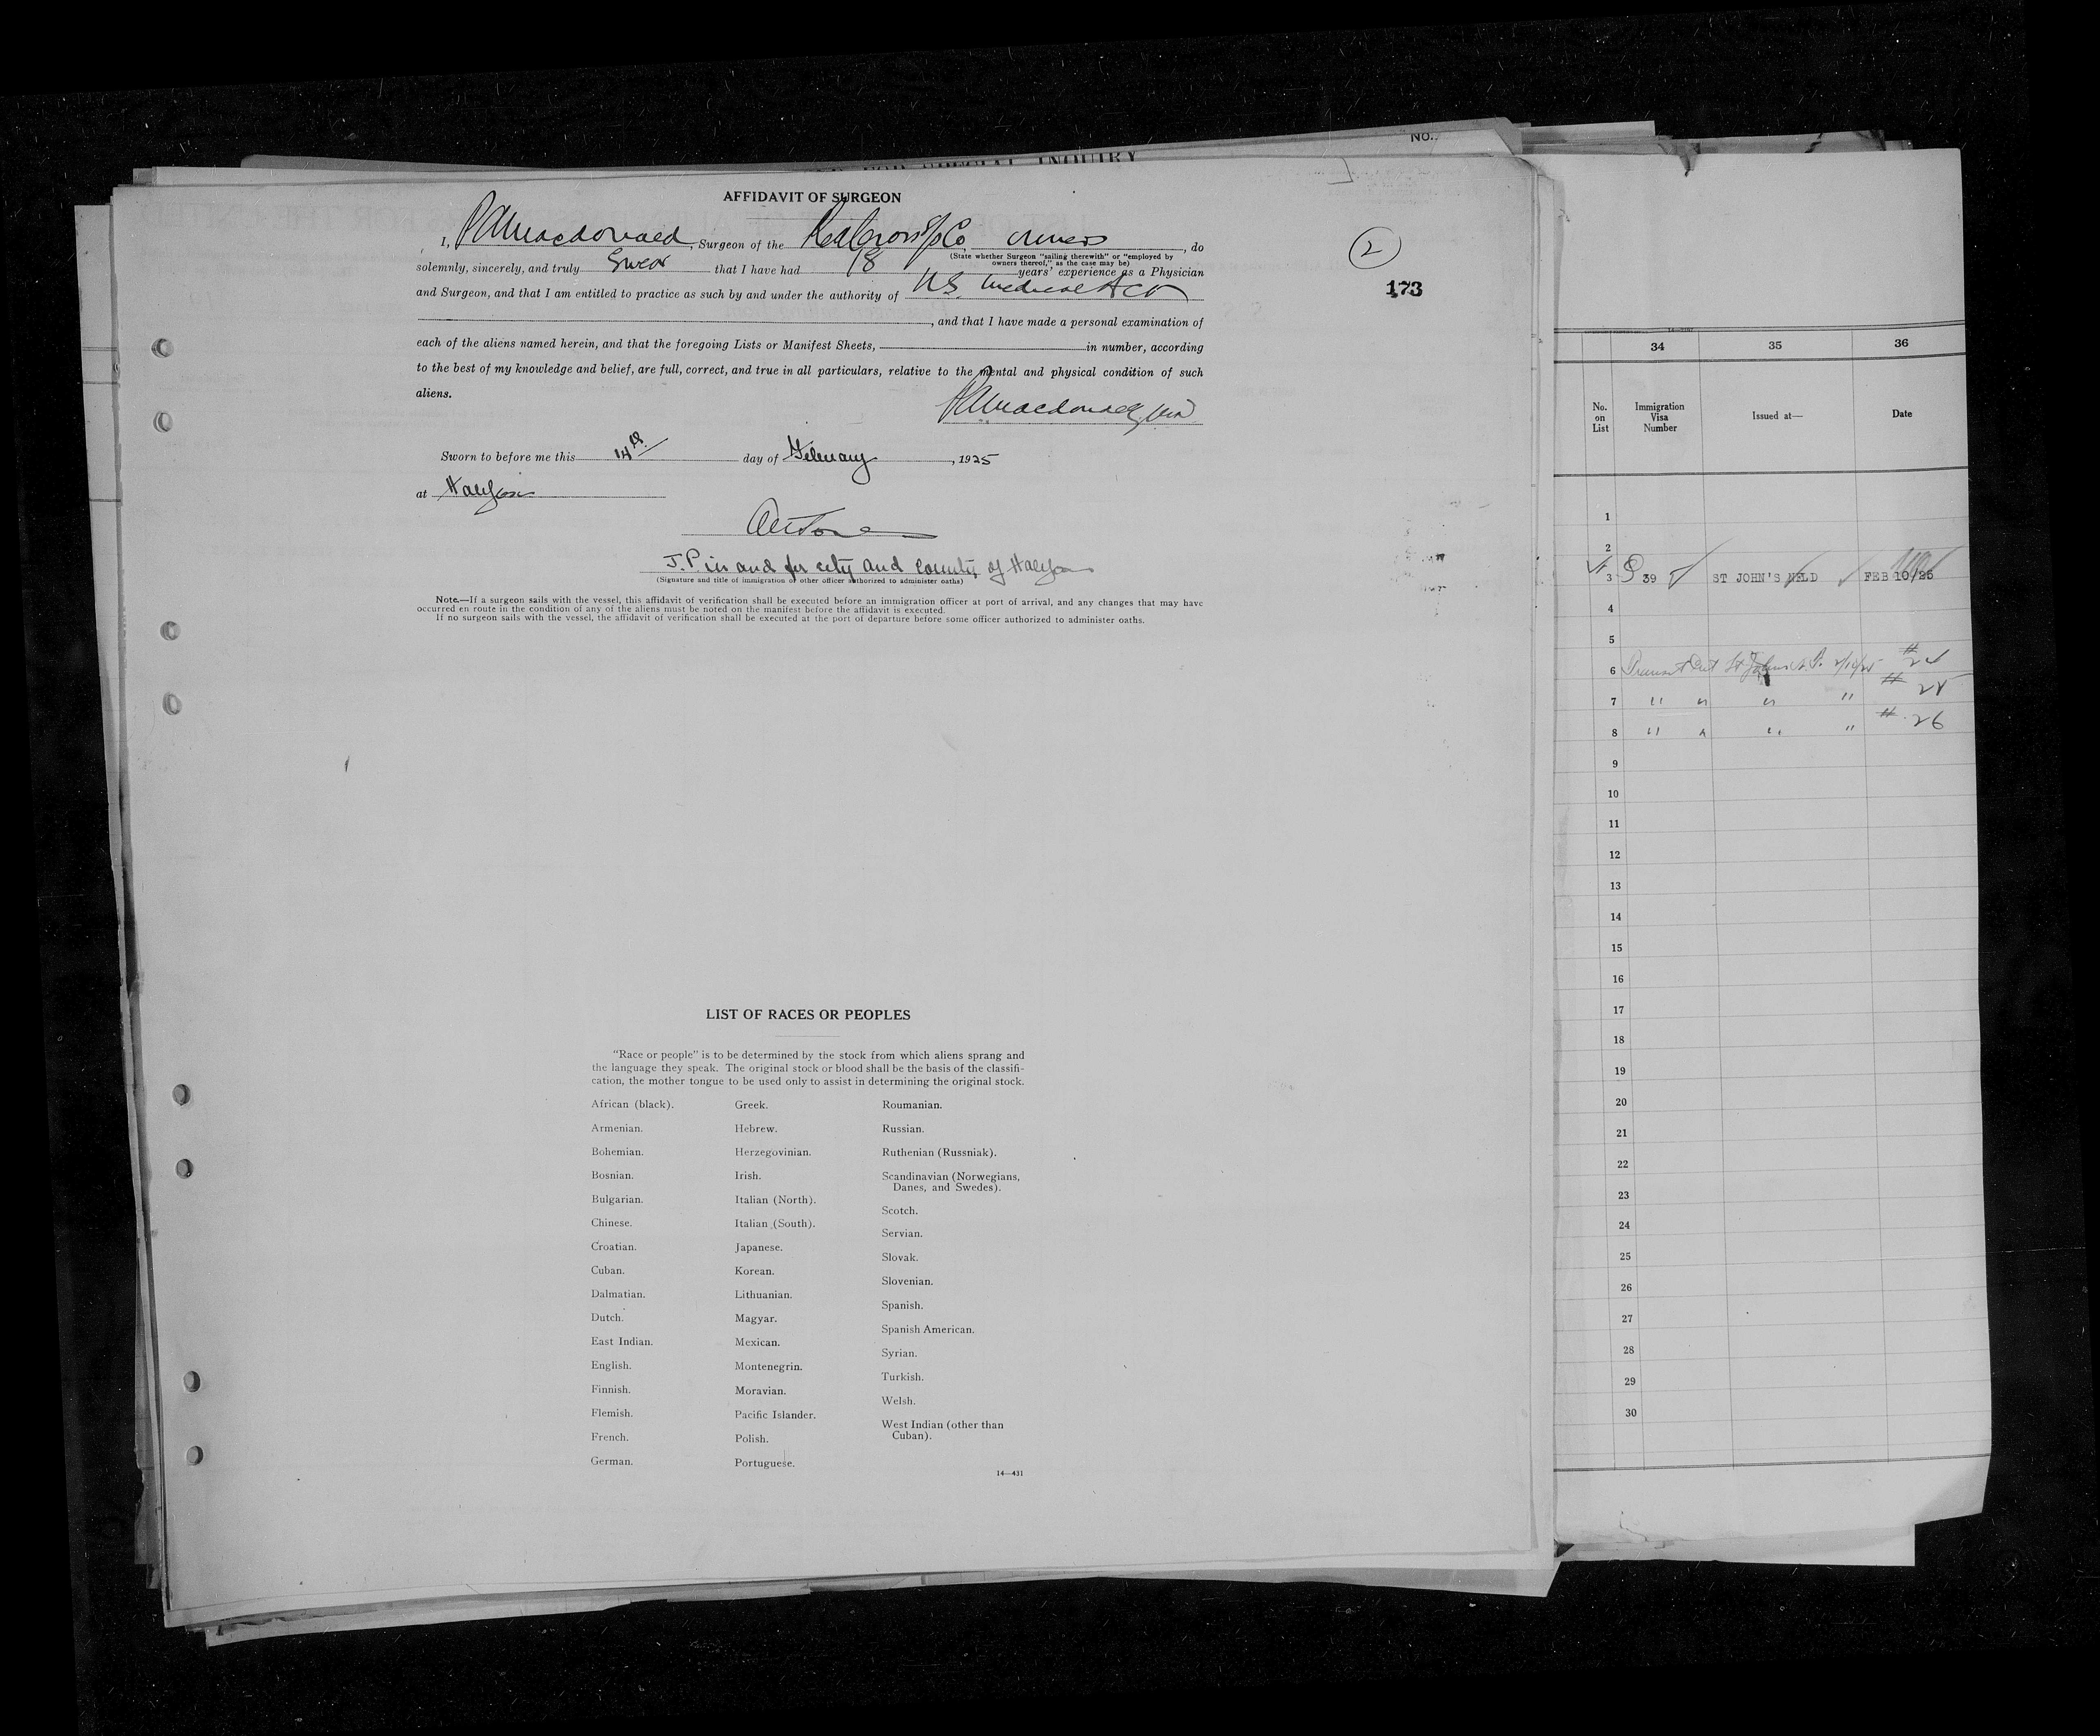 FOR SPECIAL INQUIRY
NO.
AFFIDAVIT OF SURGEON
I, PAMacdonald, Surgeon of the Red Cross S/p Co. owners, do
(State whether Surgeon "sailing therewith" or "employed by
owners thereof," as the case may be)
solemnly, sincerely, and truly Swear that I have had 18 years' experience as a Physician
and Surgeon, and that I am entitled to practice as such by and under the authority of N.S. Medical Act
, and that I have made a personal examination of
each of the aliens named herein, and that the foregoing Lists or Manifest Sheets, in number, according
to the best of my knowledge and belief, are full, correct, and true in all particulars, relative to the mental and physical condition of such
aliens.
PAMacdonald, MD
Sworn to before me this 14th day of February, 1925
at Halifax
J.P. in and for city and County of Halifax
(Signature and title of immigration or other officer authorized to administer oaths)
Note.—If a surgeon sails with the vessel, this affidavit of verification shall be executed before an immigration officer at port of arrival, and any changes that may have
occurred en route in the condition of any of the aliens must be noted on the manifest before the affidavit is executed.
If no surgeon sails with the vessel, the affidavit of verification shall be executed at the port of departure before some officer authorized to administer oaths.
2
173
LIST OF RACES OR PEOPLES
"Race or people" is to be determined by the stock from which aliens sprang and
the language they speak. The original stock or blood shall be the basis of the classifi-
cation, the mother tongue to be used only to assist in determining the original stock.
African (black).
Armenian.
Bohemian.
Bosnian.
Bulgarian.
Chinese.
Croatian.
Cuban.
Dalmatian.
Dutch.
East Indian.
English.
Finnish.
Flemish.
French.
German.
Greek.
Hebrew.
Herzegovinian.
Irish.
Italian (North).
Italian (South).
Japanese.
Korean.
Lithuanian.
Magyar.
Mexican.
Montenegrin.
Moravian.
Pacific Islander.
Polish.
Portuguese.
Roumanian.
Russian.
Ruthenian (Russniak).
Scandinavian (Norwegians,
Danes, and Swedes).
Scotch.
Servian.
Slovak.
Slovenian.
Spanish.
Spanish American.
Syrian.
Turkish.
Welsh.
West Indian (other than
Cuban).
14—431
34 35 36
No.
on
List
Immigration
Visa
Number
Issued at—
Date
1
2
3 39 ST JOHN'S NFLD FEB 10/25
4
5
6 Transit Cert St Johns N.F. 2/10/25 # 24
7 " " " " # 25
8 " " " " # 26
9
10
11
12
13
14
15
16
17
18
19
20
21
22
23
24
25
26
27
28
29
30